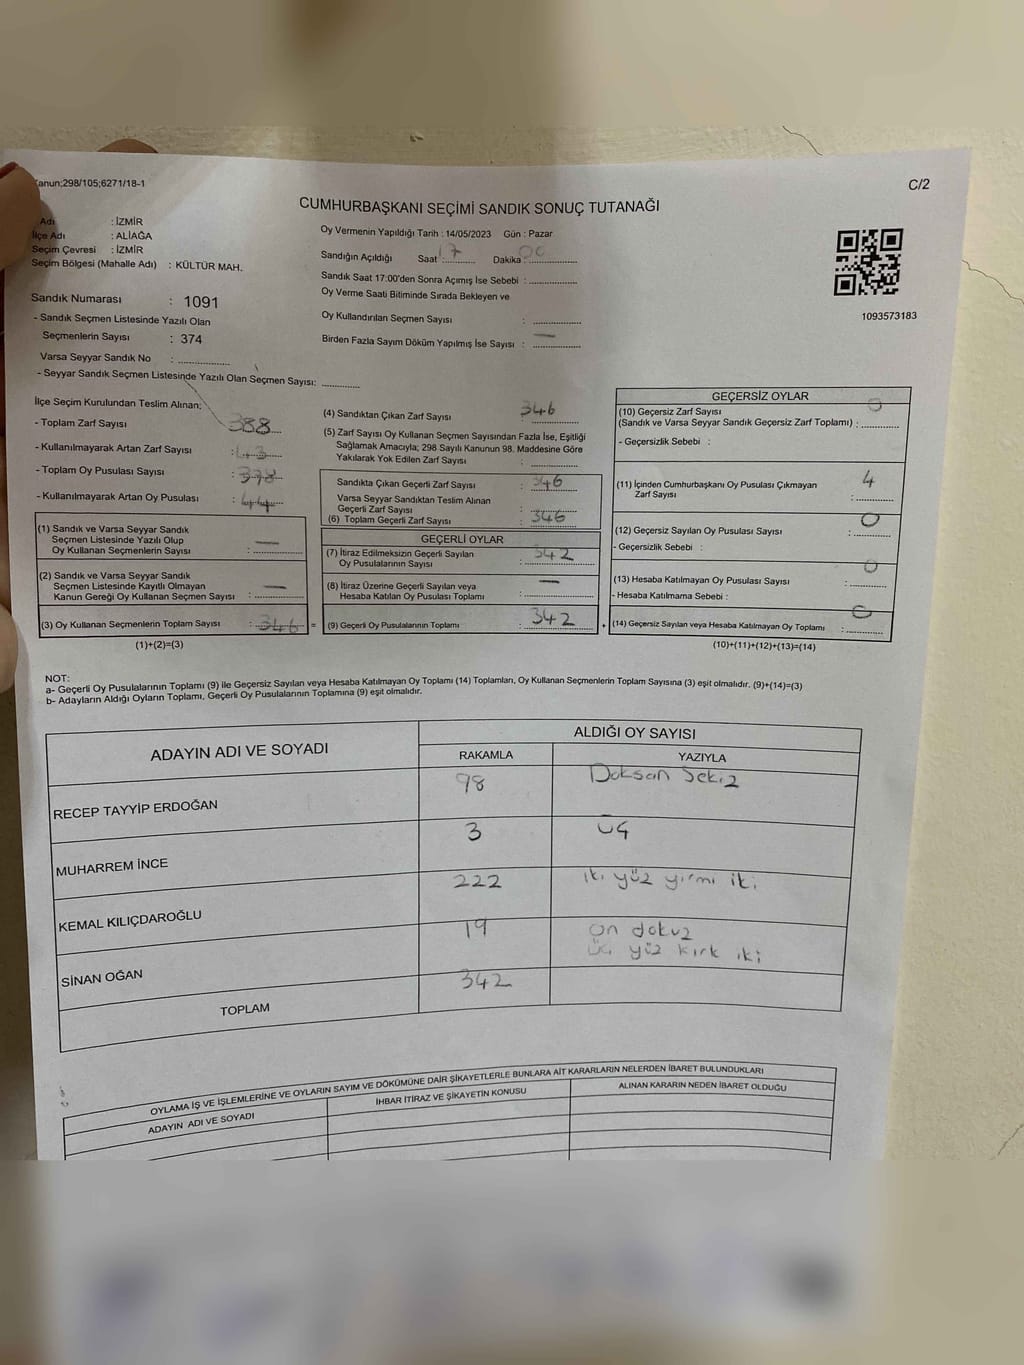 Kanun;298/105;6271/18-1
C/2
CUMHURBAŞKANI SEÇİMİ SANDIK SONUÇ TUTANAĞI
Adı : İZMİR
İlçe Adı : ALİAĞA
Seçim Çevresi : İZMİR
Seçim Bölgesi (Mahalle Adı) : KÜLTÜR MAH.
Sandık Numarası : 1091
- Sandık Seçmen Listesinde Yazılı Olan
Seçmenlerin Sayısı : 374
Varsa Seyyar Sandık No :
- Seyyar Sandık Seçmen Listesinde Yazılı Olan Seçmen Sayısı:
Oy Vermenin Yapıldığı Tarih : 14/05/2023 Gün : Pazar
Sandığın Açıldığı Saat : 17 Dakika : 00
Sandık Saat 17:00'den Sonra Açımış İse Sebebi :
Oy Verme Saati Bitiminde Sırada Bekleyen ve
Oy Kullandırılan Seçmen Sayısı :
Birden Fazla Sayım Döküm Yapılmış İse Sayısı : —
1093573183
İlçe Seçim Kurulundan Teslim Alınan;
- Toplam Zarf Sayısı : 388
- Kullanılmayarak Artan Zarf Sayısı : 43
- Toplam Oy Pusulası Sayısı :
- Kullanılmayarak Artan Oy Pusulası : 44
(1) Sandık ve Varsa Seyyar Sandık
Seçmen Listesinde Yazılı Olup
Oy Kullanan Seçmenlerin Sayısı : —
(2) Sandık ve Varsa Seyyar Sandık
Seçmen Listesinde Kayıtlı Olmayan
Kanun Gereği Oy Kullanan Seçmen Sayısı : —
(3) Oy Kullanan Seçmenlerin Toplam Sayısı : 346 =
(1)+(2)=(3)
(4) Sandıktan Çıkan Zarf Sayısı : 346
(5) Zarf Sayısı Oy Kullanan Seçmen Sayısından Fazla İse, Eşitliği
Sağlamak Amacıyla; 298 Sayılı Kanunun 98. Maddesine Göre
Yakılarak Yok Edilen Zarf Sayısı :
Sandıkta Çıkan Geçerli Zarf Sayısı : 346
Varsa Seyyar Sandıktan Teslim Alınan
Geçerli Zarf Sayısı :
(6) Toplam Geçerli Zarf Sayısı : 346
GEÇERLİ OYLAR
(7) İtiraz Edilmeksizin Geçerli Sayılan
Oy Pusulalarının Sayısı : 342
(8) İtiraz Üzerine Geçerli Sayılan veya
Hesaba Katılan Oy Pusulası Toplamı : —
(9) Geçerli Oy Pusulalarının Toplamı : 342 +
GEÇERSİZ OYLAR
(10) Geçersiz Zarf Sayısı
(Sandık ve Varsa Seyyar Sandık Geçersiz Zarf Toplamı) : 0
- Geçersizlik Sebebi :
(11) İçinden Cumhurbaşkanı Oy Pusulası Çıkmayan
Zarf Sayısı : 4
(12) Geçersiz Sayılan Oy Pusulası Sayısı : 0
- Geçersizlik Sebebi :
(13) Hesaba Katılmayan Oy Pusulası Sayısı : 0
- Hesaba Katılmama Sebebi :
(14) Geçersiz Sayılan veya Hesaba Katılmayan Oy Toplamı : 0
(10)+(11)+(12)+(13)=(14)
NOT:
a- Geçerli Oy Pusulalarının Toplamı (9) ile Geçersiz Sayılan veya Hesaba Katılmayan Oy Toplamı (14) Toplamları, Oy Kullanan Seçmenlerin Toplam Sayısına (3) eşit olmalıdır. (9)+(14)=(3)
b- Adayların Aldığı Oyların Toplamı, Geçerli Oy Pusulalarının Toplamına (9) eşit olmalıdır.
ADAYIN ADI VE SOYADI
ALDIĞI OY SAYISI
RAKAMLA YAZIYLA
RECEP TAYYİP ERDOĞAN 98 Doksan Sekiz
MUHARREM İNCE 3 Üç
KEMAL KILIÇDAROĞLU 222 iki yüz yirmi iki
SİNAN OĞAN 19 on dokuz
TOPLAM 342 üç yüz kırk iki
OYLAMA İŞ VE İŞLEMLERİNE VE OYLARIN SAYIM VE DÖKÜMÜNE DAİR ŞİKAYETLERLE BUNLARA AİT KARARLARIN NELERDEN İBARET BULUNDUKLARI
ADAYIN ADI VE SOYADI İHBAR İTİRAZ VE ŞİKAYETİN KONUSU ALINAN KARARIN NEDEN İBARET OLDUĞU